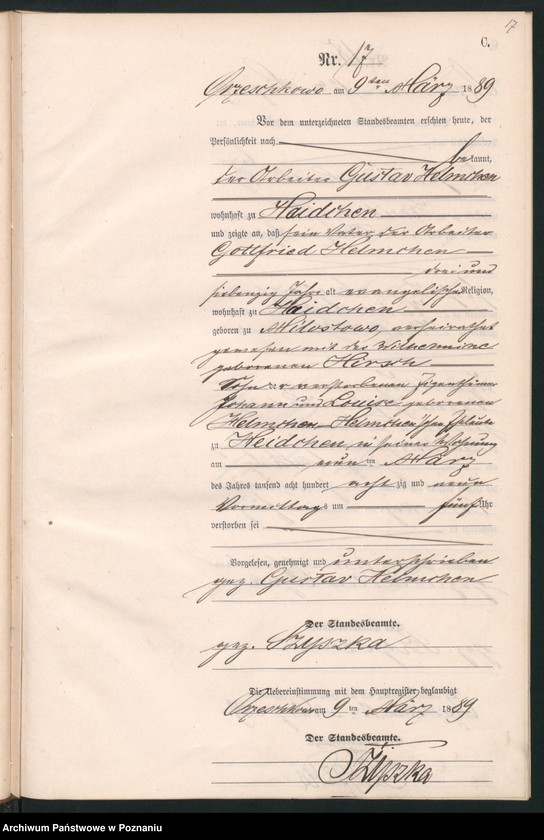 17
C.
Nr. 17
Orzeschkowo am 9ten März 1889
Vor dem unterzeichneten Standesbeamten erschien heute, der
Persönlichkeit nach
bekannt,
der Arbeiter Gustav Helmchen
wohnhaft zu Haidchen
und zeigte an, daß sein Vater der Arbeiter
Gottfried Helmchen
drei und
siebenzig Jahre alt evangelische Religion,
wohnhaft zu Haidchen
geboren zu Milostowo, verheirathet
gewesen mit der Wilhelmine
geborenen Hirsch
Sohn der verstorbenen Eigenthümer
Johann und Louise geborenen
Helmchen Helmchen'schen Eheleute
zu Heidchen, in seiner Wohnung
am neun ten März
des Jahres tausend acht hundert acht zig und neun
Vormittags um fünf Uhr
verstorben sei
Vorgelesen, genehmigt und unterschrieben
gez. Gustav Helmchen
Der Standesbeamte.
gez. Szyszka
Die Uebereinstimmung mit dem Hauptregister beglaubigt
Orzeschkowo am 9 ten März 1889
Der Standesbeamte.
Szyszka
Archiwum Państwowe w Poznaniu